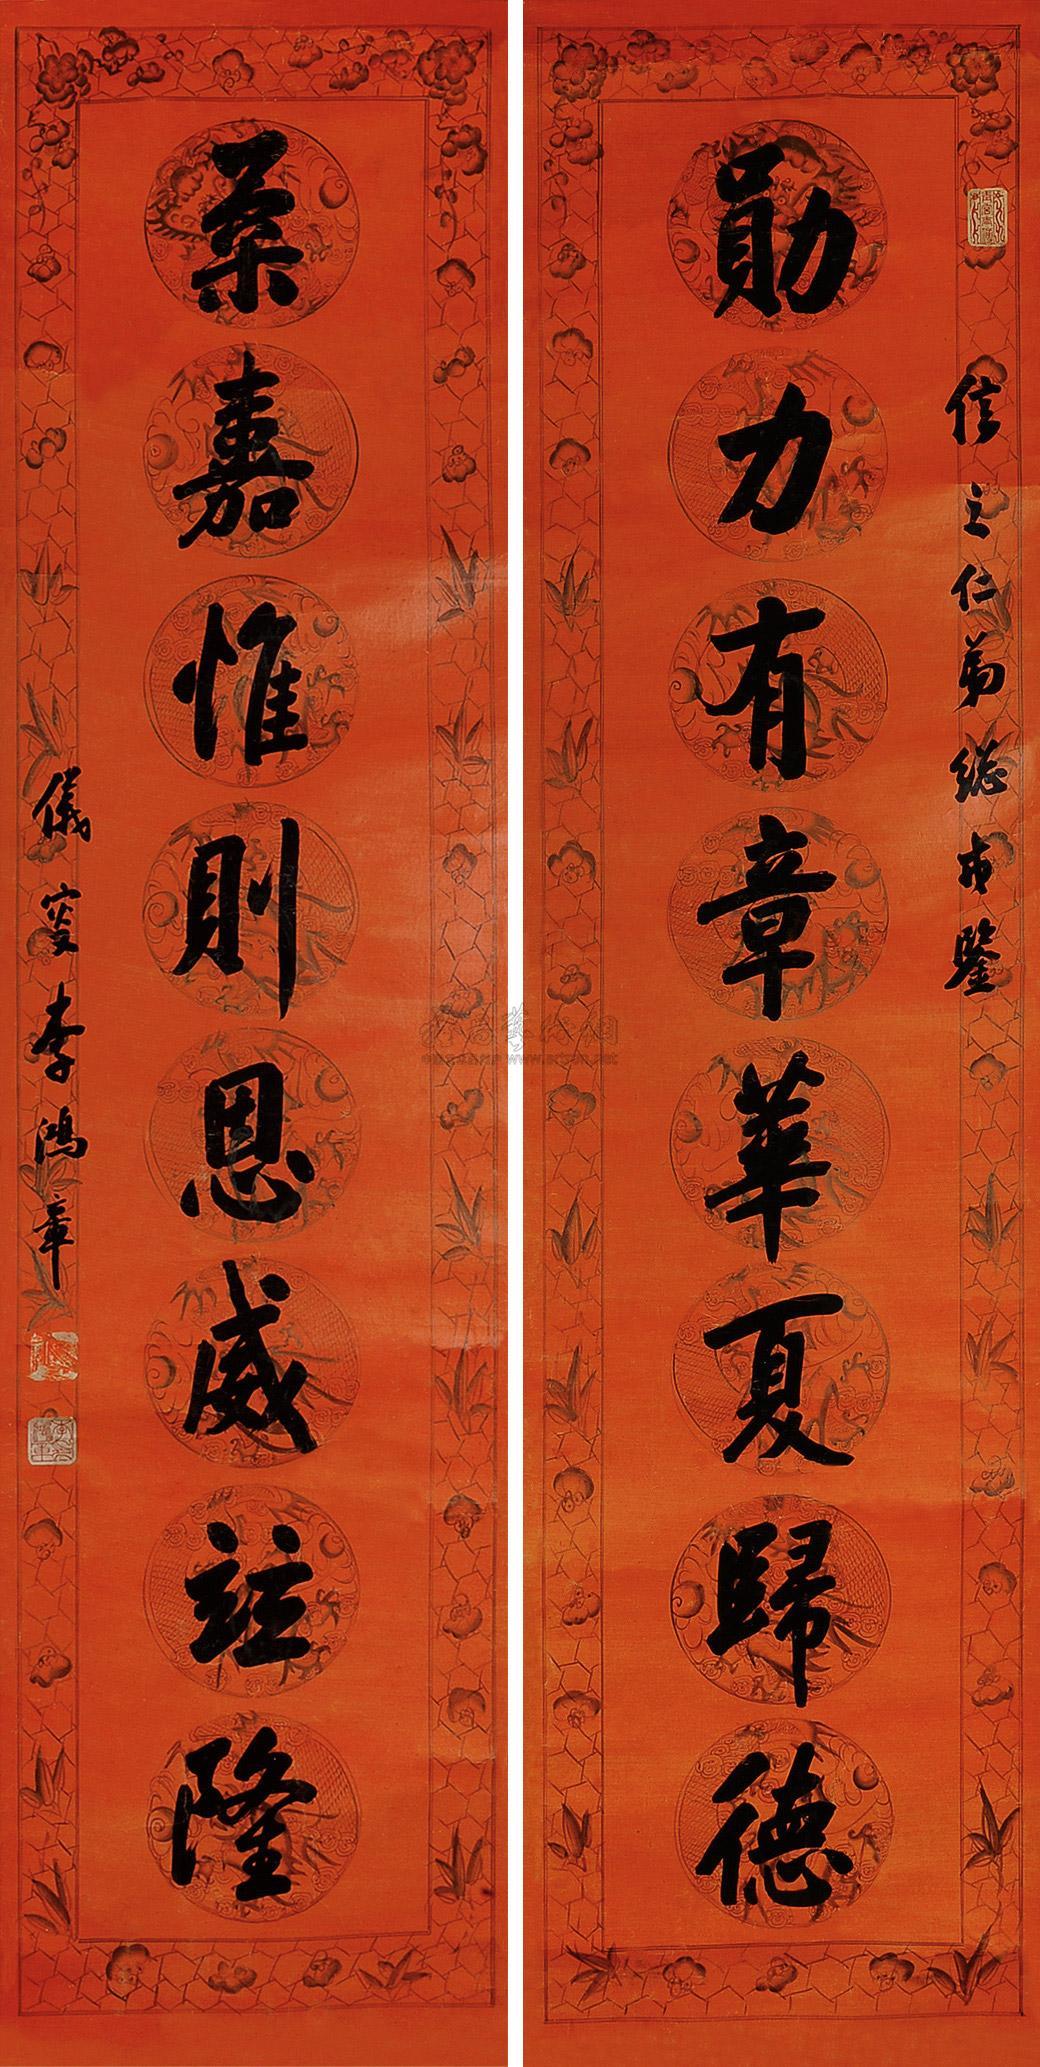 信之仁弟總戎鑒
勛力有章華夏歸德
柔嘉惟則恩威竝隆
儀叟李鴻章